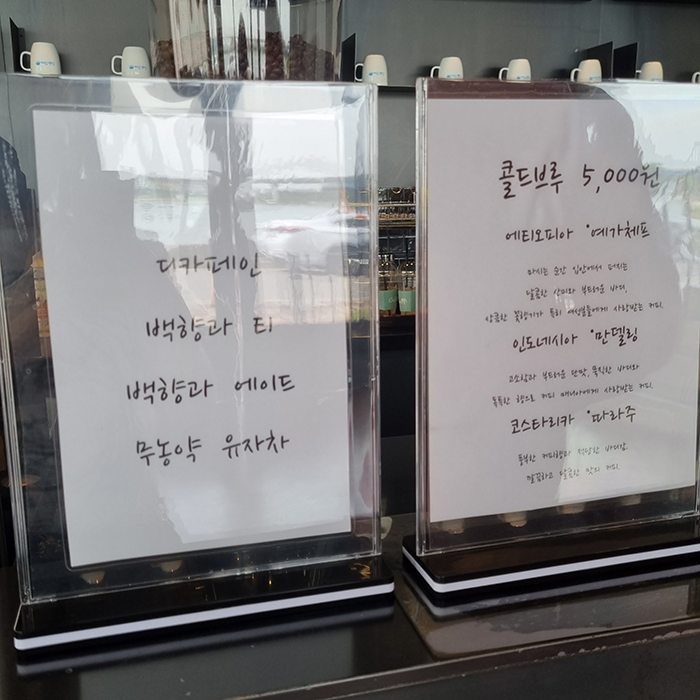 디카페인
백향과 티
백향과 에이드
무농약 유자차
콜드브루 5,000원
에티오피아 '예가체프
마시는 순간 입안에서 퍼지는
달콤한 산미와 부드러운 바디,
상큼한 꽃향기가 특히 여성분들에게 사랑받는 커피.
인도네시아 '만델링
고소함과 부드러운 단맛, 묵직한 바디와
독특한 향으로 커피 매니아에게 사랑받는 커피.
코스타리카 '따라주
풍부한 커피향과 적당한 바디감,
깔끔하고 달콤한 맛의 커피.